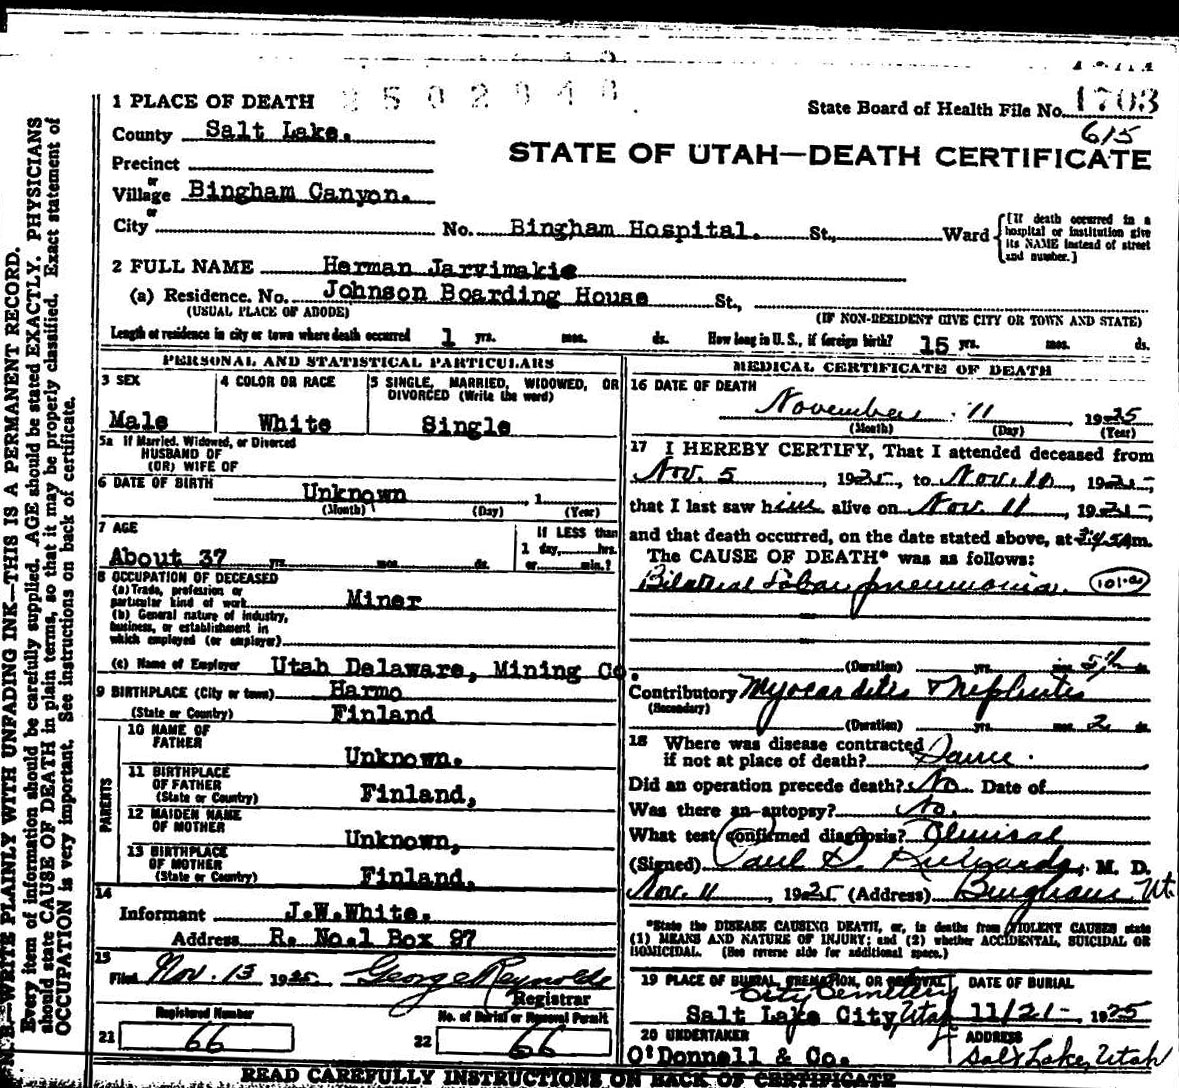 1 PLACE OF DEATH 2502940
State Board of Health File No. 1703
County Salt Lake.
615
STATE OF UTAH—DEATH CERTIFICATE
Precinct
or
Village Bingham Canyon.
or
City No. Bingham Hospital. St., Ward
[If death occurred in a hospital or institution give its NAME instead of street and number.]
2 FULL NAME Herman Jarvimakie
(a) Residence. No. Johnson Boarding House St.,
(USUAL PLACE OF ABODE) (IF NON-RESIDENT GIVE CITY OR TOWN AND STATE)
Length of residence in city or town where death occurred 1 yrs. mos. ds. How long in U. S., if foreign birth? 15 yrs. mos. ds.
PERSONAL AND STATISTICAL PARTICULARS
3 SEX
Male
4 COLOR OR RACE
White
5 SINGLE, MARRIED, WIDOWED, OR
DIVORCED (Write the word)
Single
5a If Married, Widowed, or Divorced
HUSBAND OF
(OR) WIFE OF
6 DATE OF BIRTH Unknown , 1
(Month) (Day) (Year)
7 AGE
About 37 yrs. mos. ds.
If LESS than
1 day, hrs.
or min.?
8 OCCUPATION OF DECEASED
(a) Trade, profession or
particular kind of work Miner
(b) General nature of industry,
business, or establishment in
which employed (or employer)
(c) Name of Employer Utah Delaware, Mining Co.
9 BIRTHPLACE (City or town) Harmo
(State or Country) Finland
PARENTS
10 NAME OF
FATHER Unknown.
11 BIRTHPLACE
OF FATHER
(State or Country) Finland,
12 MAIDEN NAME
OF MOTHER Unknown,
13 BIRTHPLACE
OF MOTHER
(State or Country) Finland,
14
Informant J.W.White.
Address R. No.1 Box 97
15
Filed Nov. 13 1925 George Reynolds
Registrar
Registered Number
21 66
No. of Burial or Removal Permit
22 66
MEDICAL CERTIFICATE OF DEATH
16 DATE OF DEATH
November 11 1925
(Month) (Day) (Year)
17 I HEREBY CERTIFY, That I attended deceased from
Nov. 5, 1925, to Nov. 10, 1925,
that I last saw him alive on Nov. 11, 1925,
and that death occurred, on the date stated above, at m.
The CAUSE OF DEATH* was as follows:
Bilateral Lobar pneumonia. 101-a
(Duration) yrs. mos. 5½ ds.
Contributory Myocardites & Nephrites
(Secondary)
(Duration) yrs. mos. 2 ds.
18 Where was disease contracted
if not at place of death? Same.
Did an operation precede death? No Date of
Was there an autopsy? No.
What test confirmed diagnosis? Clinical
(Signed) Paul S. Richards, M. D.
Nov. 11, 1925 (Address) Bingham, Ut.
*State the DISEASE CAUSING DEATH, or, in deaths from VIOLENT CAUSES state
(1) MEANS AND NATURE OF INJURY; and (2) whether ACCIDENTAL, SUICIDAL OR
HOMICIDAL. (See reverse side for additional space.)
19 PLACE OF BURIAL, CREMATION, OR REMOVAL
City Cemetery
Salt Lake City, Utah
DATE OF BURIAL
11/21- 1925
20 UNDERTAKER
O'Donnell & Co.
ADDRESS
Salt Lake, Utah
READ CAREFULLY INSTRUCTIONS ON BACK OF CERTIFICATE
N. B.—WRITE PLAINLY WITH UNFADING INK—THIS IS A PERMANENT RECORD.
Every item of information should be carefully supplied. AGE should be stated EXACTLY. PHYSICIANS
should state CAUSE OF DEATH in plain terms, so that it may be properly classified. Exact statement of
OCCUPATION is very important. See instructions on back of certificate.